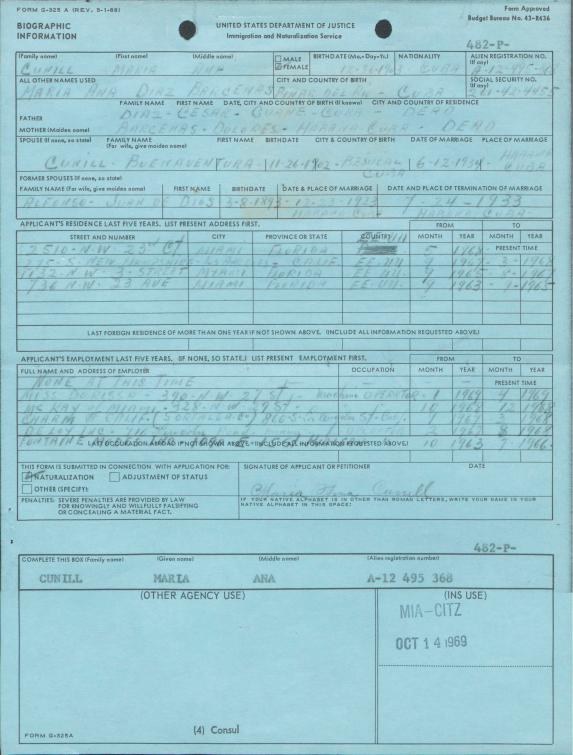 FORM G-325 A (REV. 5-1-68)
Form Approved
Budget Bureau No. 43-R436
BIOGRAPHIC INFORMATION
UNITED STATES DEPARTMENT OF JUSTICE
Immigration and Naturalization Service
482-P-
(Family name) (First name) (Middle name) MALE FEMALE BIRTHDATE (Mo.-Day-Yr.) NATIONALITY ALIEN REGISTRATION NO. (If any)
CUNILL MARIA ANA CUBA A-12-495-
ALL OTHER NAMES USED CITY AND COUNTRY OF BIRTH SOCIAL SECURITY NO. (If any)
MARIA ANA DIAZ BARCENAS PINAR DEL RIO - CUBA
FAMILY NAME FIRST NAME DATE, CITY AND COUNTRY OF BIRTH (If known) CITY AND COUNTRY OF RESIDENCE
FATHER DIAZ - CESAR - GUANE - CUBA - DEAD
MOTHER (Maiden name) BARCENAS - DOLORES - HABANA - CUBA - DEAD
SPOUSE (If none, so state) FAMILY NAME (For wife, give maiden name) FIRST NAME BIRTHDATE CITY & COUNTRY OF BIRTH DATE OF MARRIAGE PLACE OF MARRIAGE
CUNILL - BUENAVENTURA - 11-26-1902 - CUBA 6-12-1934 - HABANA CUBA
FORMER SPOUSES (If none, so state)
FAMILY NAME (For wife, give maiden name) FIRST NAME BIRTHDATE DATE & PLACE OF MARRIAGE DATE AND PLACE OF TERMINATION OF MARRIAGE
ALFONSO - JUAN DE DIOS 3-8-1893 - 12-23-1923 7-24-1933
HABANA CUBA HABANA CUBA
APPLICANT'S RESIDENCE LAST FIVE YEARS. LIST PRESENT ADDRESS FIRST. FROM TO
STREET AND NUMBER CITY PROVINCE OR STATE COUNTRY MONTH YEAR MONTH YEAR
2510-N.W. 23rd CT MIAMI FLORIDA 5 1968 PRESENT TIME
S-NEW HAMPSHIRE - CALIF EE-UU 9 1967
1132-N.W-3-STREET MIAMI FLORIDA EE-UU 9 1965 8-1967
736 N.W. 23 AVE MIAMI FLORIDA EE-UU 9 1963 1-1965
LAST FOREIGN RESIDENCE OF MORE THAN ONE YEAR IF NOT SHOWN ABOVE. (INCLUDE ALL INFORMATION REQUESTED ABOVE)
APPLICANT'S EMPLOYMENT LAST FIVE YEARS. (IF NONE, SO STATE.) LIST PRESENT EMPLOYMENT FIRST. FROM TO
FULL NAME AND ADDRESS OF EMPLOYER OCCUPATION MONTH YEAR MONTH YEAR
NONE AT THIS TIME PRESENT TIME
MISS - 390-N.W. 27 ST - OPERATOR - 1 1969 4 1969
Mc KAY OF MIAMI - 328-N.W. 10 12
CHARM OF CALIF
INC-
FONTAINE 10 1963 7-1966
LAST OCCUPATION ABROAD IF NOT SHOWN ABOVE. (INCLUDE ALL INFORMATION REQUESTED ABOVE)
THIS FORM IS SUBMITTED IN CONNECTION WITH APPLICATION FOR: SIGNATURE OF APPLICANT OR PETITIONER DATE
NATURALIZATION ADJUSTMENT OF STATUS
OTHER (SPECIFY): Maria Ana Cunill
PENALTIES: SEVERE PENALTIES ARE PROVIDED BY LAW FOR KNOWINGLY AND WILLFULLY FALSIFYING OR CONCEALING A MATERIAL FACT.
IF YOUR NATIVE ALPHABET IS IN OTHER THAN ROMAN LETTERS, WRITE YOUR NAME IN YOUR NATIVE ALPHABET IN THIS SPACE:
482-P-
COMPLETE THIS BOX (Family name) (Given name) (Middle name) (Alien registration number)
CUNILL MARIA ANA A-12 495 368
(OTHER AGENCY USE) (INS USE)
MIA-CITZ
OCT 14 1969
(4) Consul
FORM G-325A